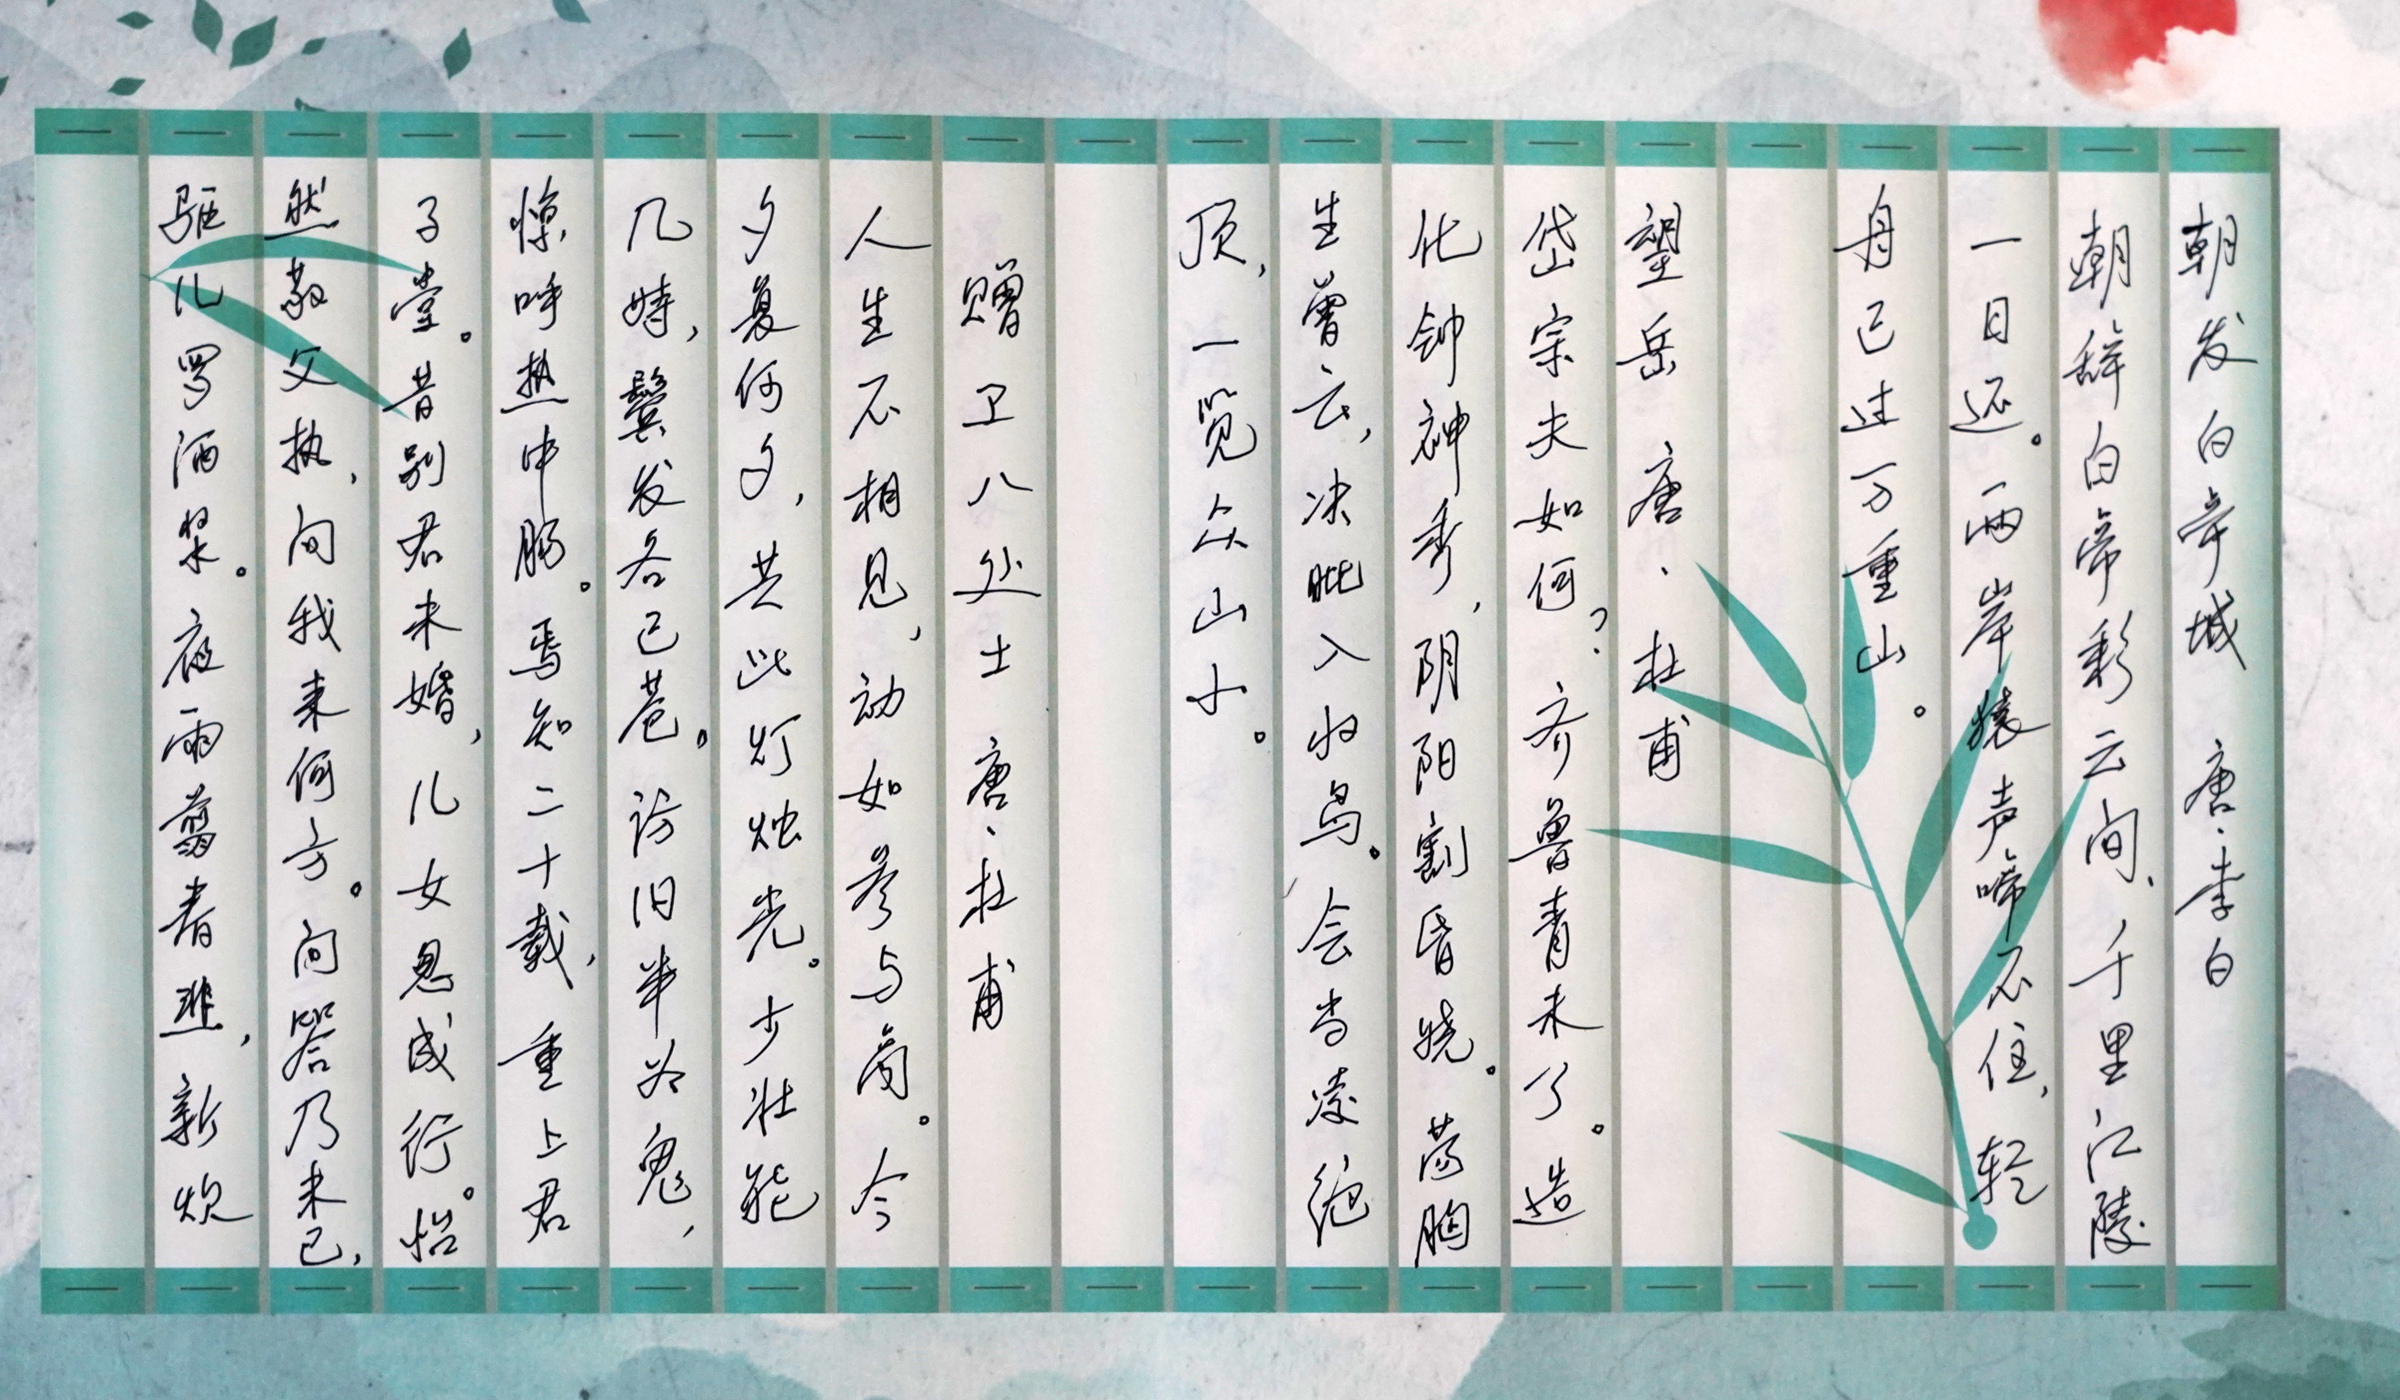 朝发白帝城 唐·李白
朝辞白帝彩云间，千里江陵
一日还。两岸猿声啼不住，轻
舟已过万重山。
望岳 唐·杜甫
岱宗夫如何？齐鲁青未了。造
化钟神秀，阴阳割昏晓。荡胸
生曾云，决眦入归鸟。会当凌绝
顶，一览众山小。
赠卫八处士 唐·杜甫
人生不相见，动如参与商。今
夕复何夕，共此灯烛光。少壮能
几时，鬓发各已苍。访旧半为鬼，
惊呼热中肠。焉知二十载，重上君
子堂。昔别君未婚，儿女忽成行。怡
然敬父执，问我来何方。问答乃未已，
驱儿罗酒浆。夜雨翦春韭，新炊